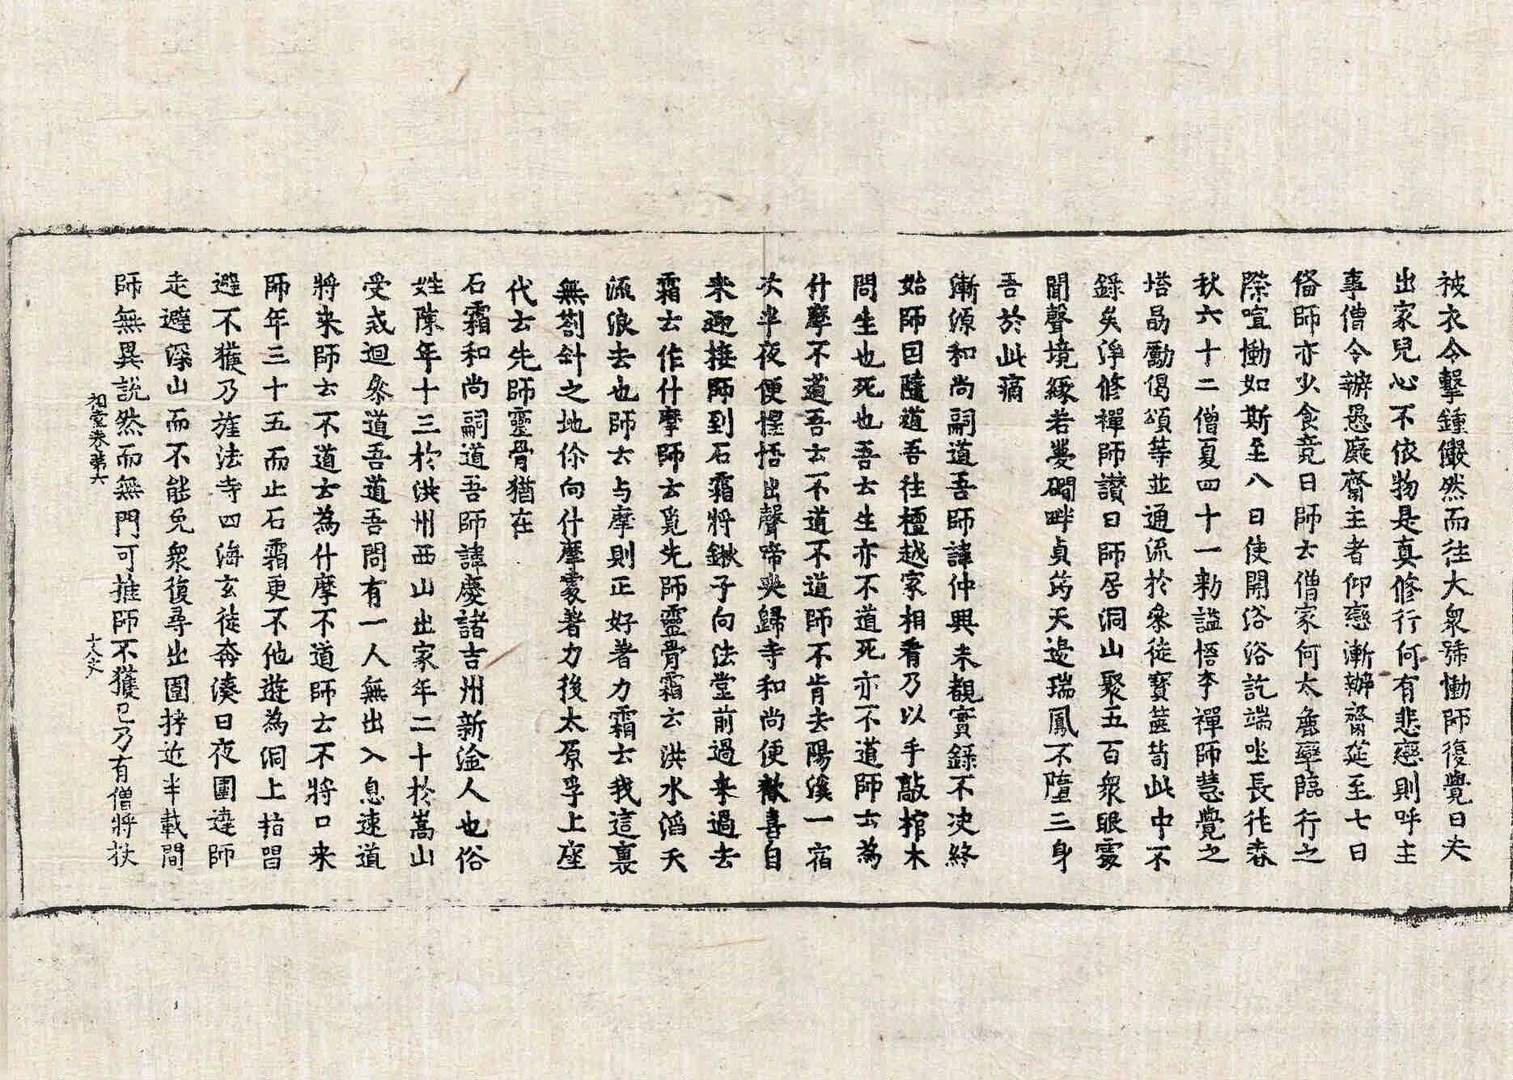 被衣令擊鍾儼然而往大衆號慟師復覺曰夫
出家兒心不依物是真修行何有悲戀則呼主
事僧令辦愚癡齋主者仰戀漸辦齋筵至七日
俻師亦少食竟日師云僧家何太麁率臨行之
際喧慟如斯至八日使開浴浴訖端坐長往春
秋六十二僧夏四十一勑謚悟本禪師慧覺之
塔勗勵偈頌等並通流於叅徒寶篋笥此中不
錄矣淨修禪師讚曰師居洞山聚五百衆眼處
聞聲境緣若夢磵畔貞筠天邊瑞鳳不墮三身
吾於此痛
漸源和尚嗣道吾師諱仲興未覩實錄不决終
始師因隨道吾往檀越家相看乃以手敲棺木
問生也死也吾云生亦不道死亦不道師云為
什摩不道吾云不道不道師不肯去陽溪一宿
次半夜便惺悟出聲啼哭歸寺和尚便歡喜自
來迎接師到石霜將鍬子向法堂前過来過去
霜云作什摩師云覓先師靈骨霜云洪水滔天
流浪去也師云与摩則正好著力霜云我這裏
無劄針之地你向什摩處著力後太原孚上座
代云先師靈骨猶在
石霜和尚嗣道吾師諱慶諸吉州新淦人也俗
姓陳年十三於洪州西山出家年二十於嵩山
受戒迴叅道吾道吾問有一人無出入息速道
將来師云不道云為什摩不道師云不將口来
師年三十五而止石霜更不他遊為洞上指喝
避不獲乃旌法寺四海玄徒奔湊日夜圍遶師
走避深山而不能免衆復尋出圍持近半載間
師無異說然而無門可推師不獲已乃有僧將狀
祖堂卷第六
十八丈